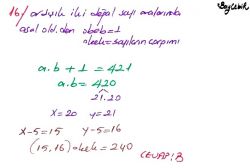 Baybenk
16/ ardışık iki doğal sayı aralarında
asal old.dan obeb=1
okek=sayıların çarpımı
a.b + 1 = 421
a.b = 420
21.20
x=20 y=21
x-5=15 y-5=16
(15,16) okek = 240
CEVAP: B